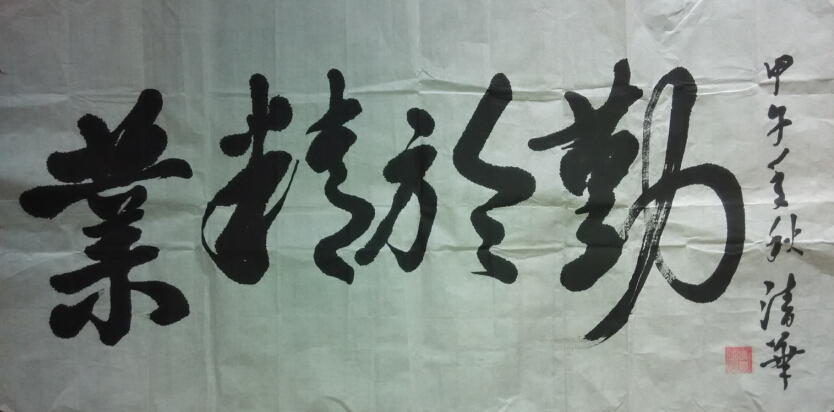 業精於勤
甲午年秋 清華